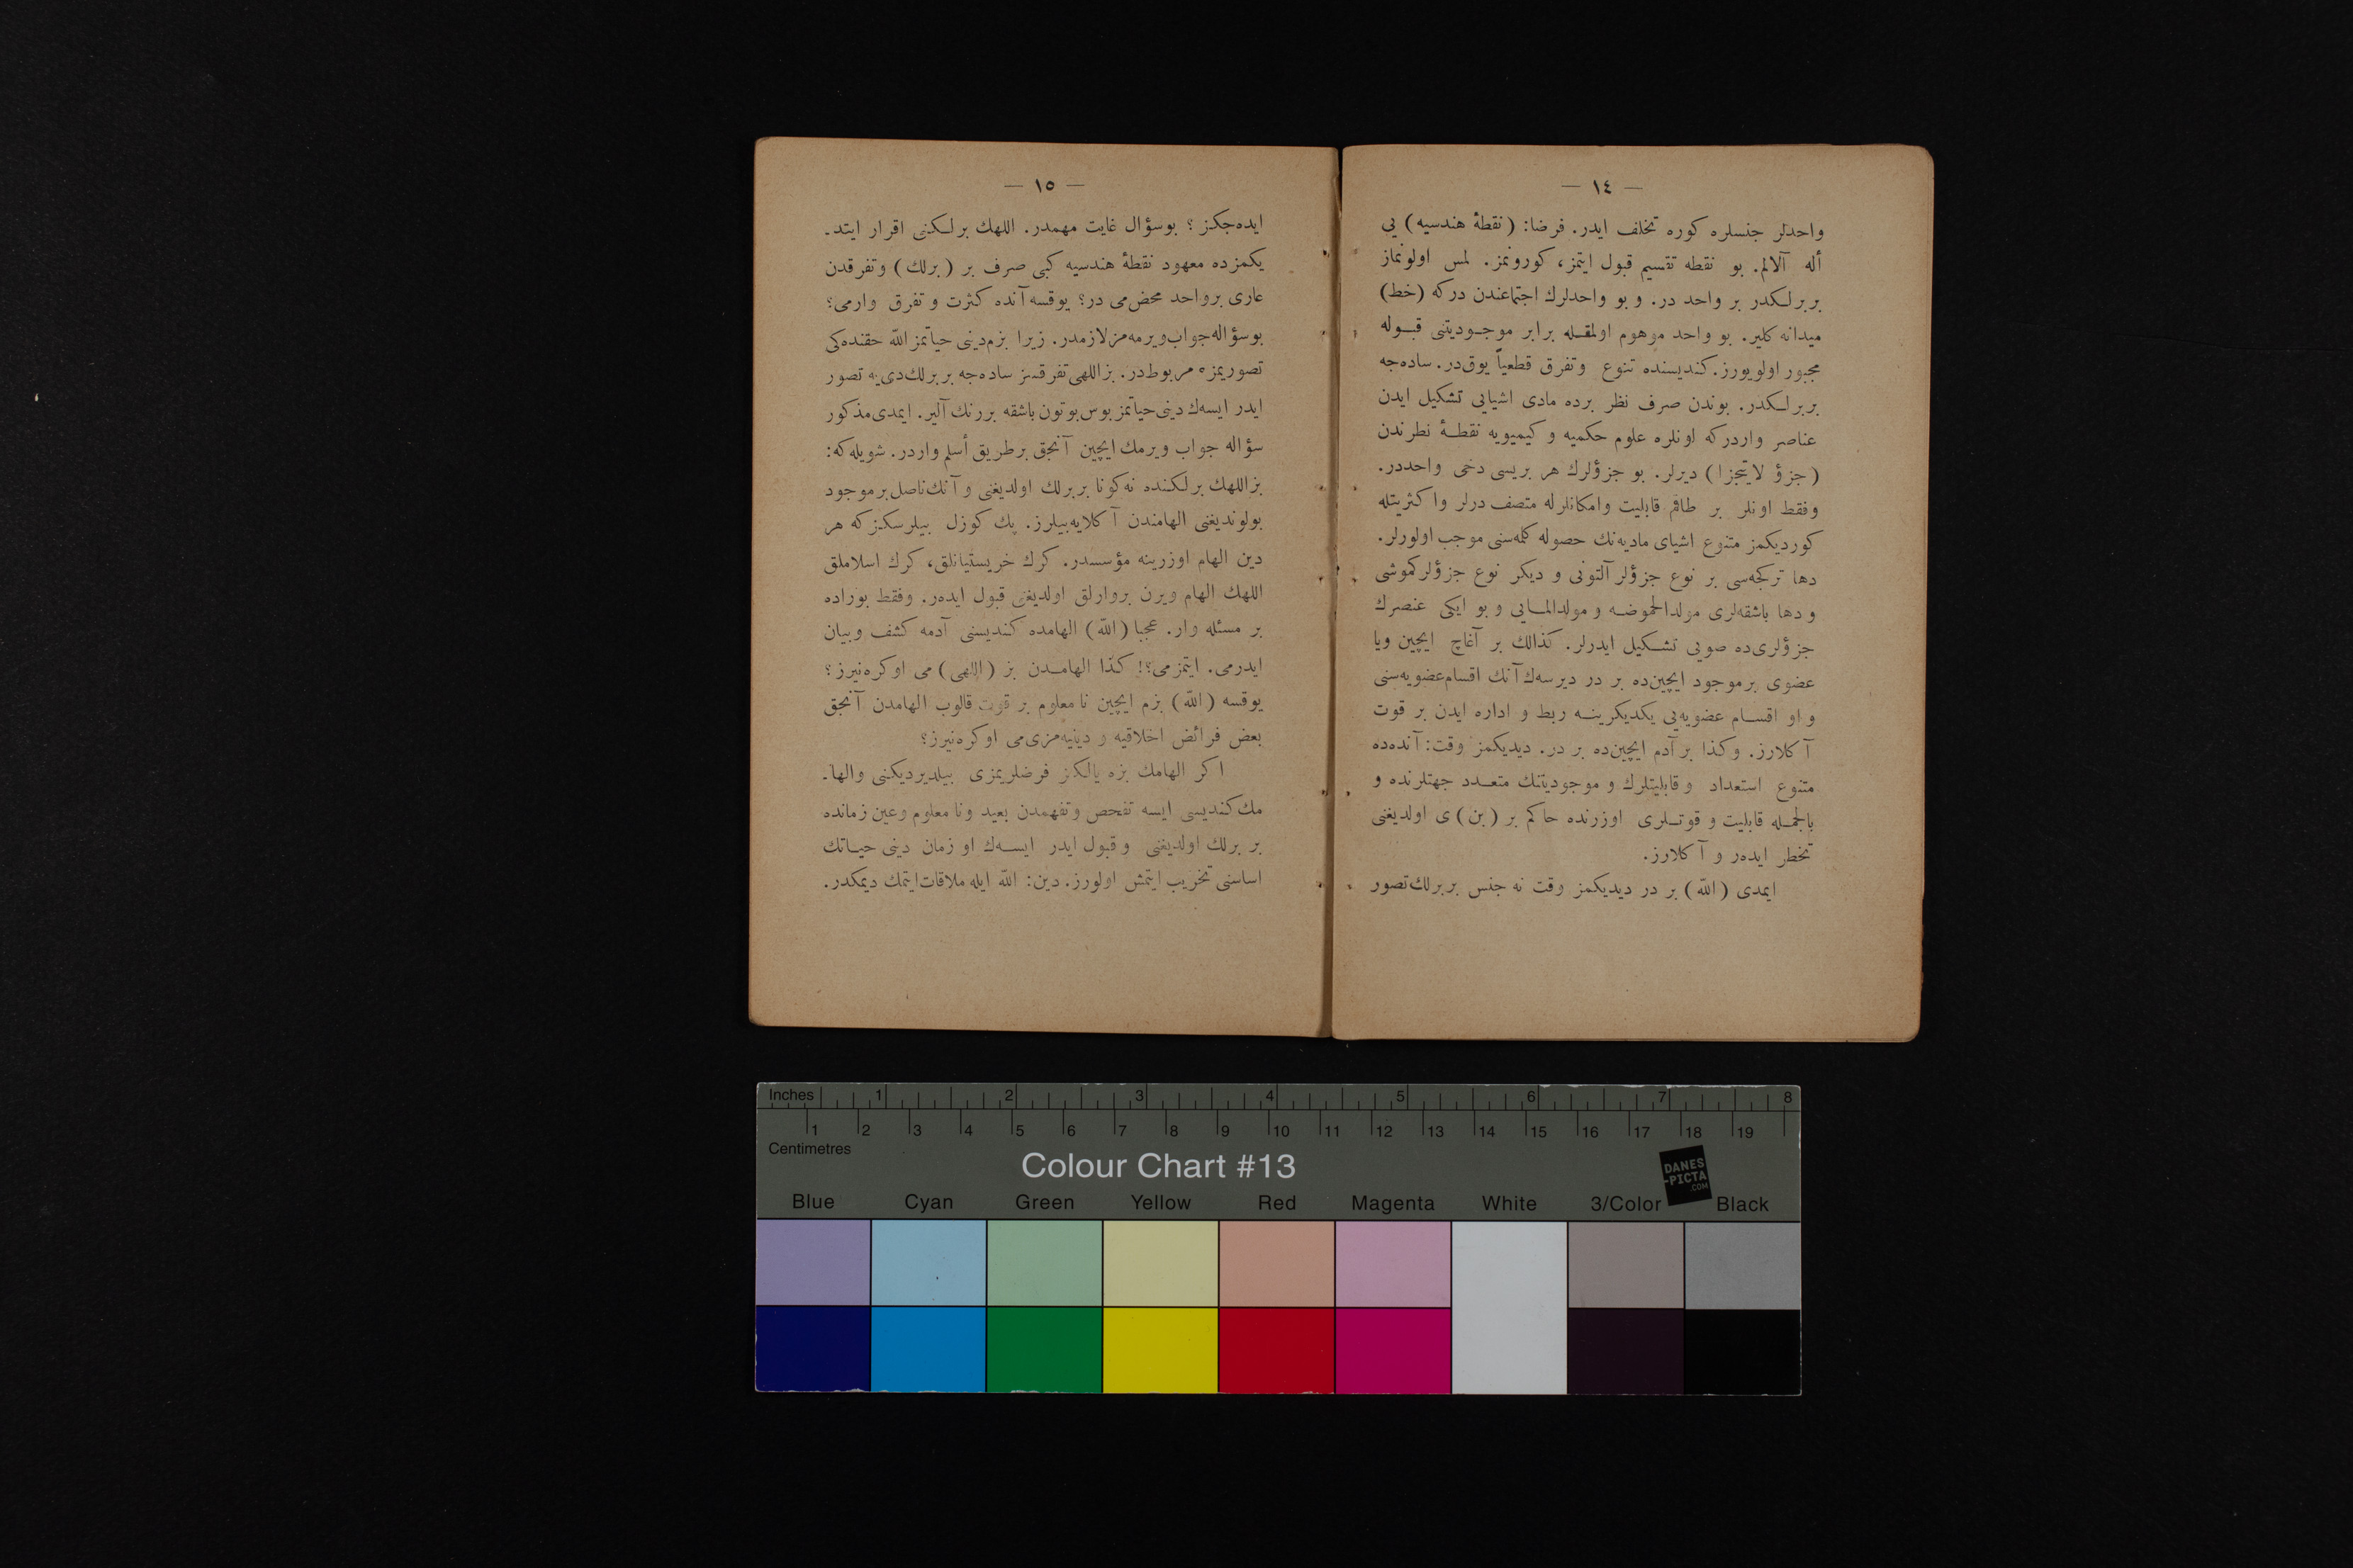 — ١٤ —
واحدلر جنسلره كوره تخلف ايدر. فرضا: (نقطۀ هندسيه) يى
أله آلالم. بو نقطه تقسيم قبول ايتمز، كورونمز. لمس اولونماز
بر برلكدر بر واحد در. و بو واحدلرك اجتماعندن دركه (خط)
ميدانه كلير. بو واحد موهوم اولمقله برابر موجوديتنى قبوله
مجبور اولويورز. كنديسنده تنوع وتفرق قطعياً يوق‌در. ساده‌جه
بر برلكدر. بوندن صرف نظر برده مادى اشيايى تشكيل ايدن
عناصر واردركه اونلره علوم حكميه و كيميويه نقطۀ نظرندن
(جزؤ لايتجزا) ديرلر. بو جزؤلرك هر بريسى دخى واحددر.
وفقط اونلر بر طاقم قابليت وامكانلرله متصف درلر واكثريتله
كورديكمز متنوع اشياى ماديه‌نك حصوله كلمه‌سنى موجب اولورلر.
دها تركجه‌سى بر نوع جزؤلر آلتونى و ديكر نوع جزؤلر كموشى
و دها باشقه‌لرى مولدالحموضه و مولدالمايى و بو ايكى عنصرك
جزؤلرى‌ده صويى تشكيل ايدرلر. كذالك بر آغاچ ايچين ويا
عضوى برموجود ايچين‌ده بر در ديرسه‌ك آنك اقسام عضويه‌سنى
و او اقسام عضويه‌يى يكديكرينه ربط و اداره ايدن بر قوت
آكلارز. وكذا بر آدم ايچين‌ده بر در. ديديكمز وقت: آنده‌ده
متنوع استعداد و قابليتلرك و موجوديتنك متعدد جهتلرنده و
بالجمله قابليت و قوتلرى اوزرنده حاكم بر (بن) ى اولديغنى
تخطر ايده‌ر و آكلارز.
ايمدى (الله) بر در ديديكمز وقت نه جنس بر برلك تصور
— ١٥ —
ايده‌جكز؟ بوسؤال غايت مهمدر. اللهك برلكنى اقرار ايتد-
يكمزده معهود نقطۀ هندسيه كبى صرف بر (برلك) وتفرقدن
عارى برواحد محض‌مى در؟ يوقسه آنده كثرت و تفرق وارمى؟
بوسؤاله جواب‌ويرمه‌مز لازمدر. زيرا بزم‌دينى حياتمز الله حقنده‌كى
تصوريمزه مربوط‌در. بزاللهى تفرقسز ساده‌جه بر برلك‌دييه تصور
ايدر ايسه‌ك دينى حياتمز بوس‌بوتون باشقه بررنك آلير. ايمدى مذكور
سؤاله جواب ويرمك ايچين آنجق برطريق أسلم واردر. شويله‌كه:
بزاللهك برلكنده نه‌كونا بر برلك اولديغنى و آنك‌ناصل برموجود
بولونديغنى الهامندن آكلايه‌بيلرز. پك كوزل بيلرسكز كه هر
دين الهام اوزرينه مؤسسدر. كرك خريستيانلق، كرك اسلاملق
اللهك الهام ويرن بروارلق اولديغنى قبول ايده‌ر. وفقط بوراده
بر مسئله وار. عجبا (الله) الهامده كنديسنى آدمه كشف وبيان
ايدرمى. ايتمزمى؟! كذا الهامدن بز (اللهى) مى اوكره‌نيرز؟
يوقسه (الله) بزم ايچين نا معلوم بر قوت قالوب الهامدن آنجق
بعض فرائض اخلاقيه و دينيه‌مزى‌مى اوكره‌نيرز؟
اكر الهامك بزه يالكز فرضلريمزى بيلديرديكنى والها-
مك كنديسى ايسه تفحص وتفهمدن بعيد ونا معلوم وعين زمانده
بر برلك اولديغنى و قبول ايدر ايسه‌ك او زمان دينى حياتك
اساسنى تخريب ايتمش اولورز. دين: الله ايله ملاقات ايتمك ديمكدر.
Inches 1 2 3 4 5 6 7 8
1 2 3 4 5 6 7 8 9 10 11 12 13 14 15 16 17 18 19
Centimetres
Colour Chart #13
DANES
-PICTA
.COM
Blue Cyan Green Yellow Red Magenta White 3/Color Black